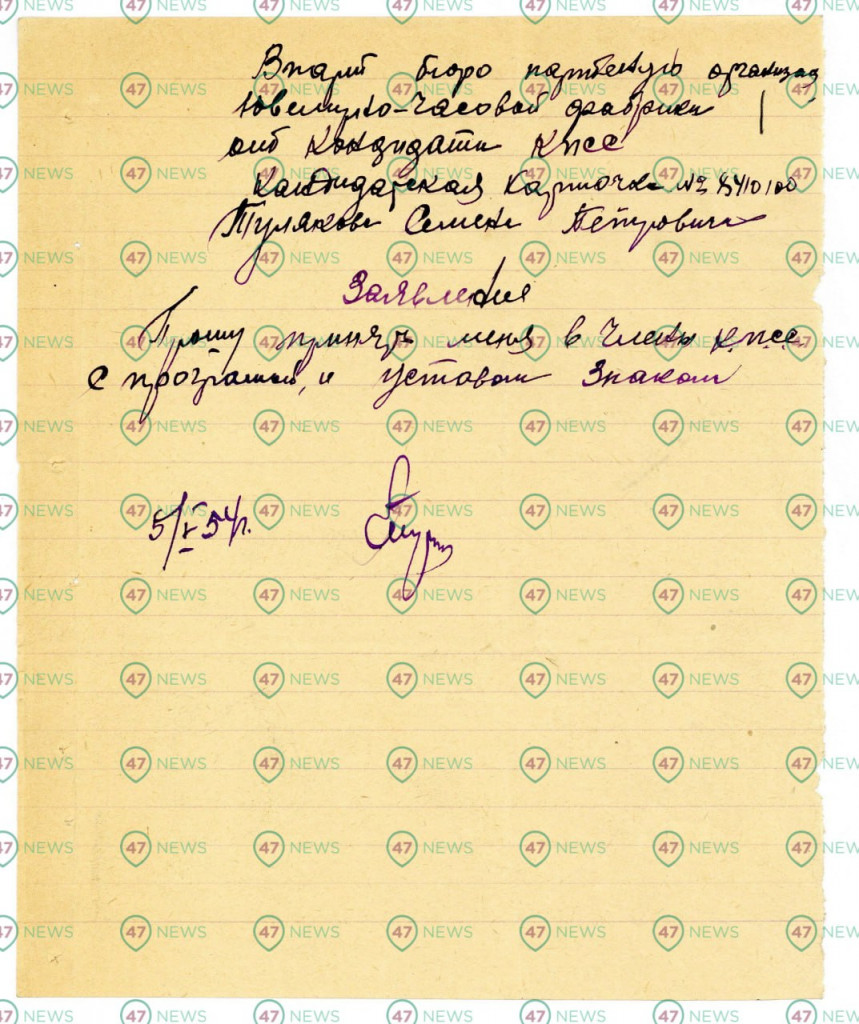 В парт бюро организац
Ювелирно-Часовой фабрики
от Кандидата КПСС
Кандидатская Карточка №
Тулякова Семена Петровича
Заявления
Прошу принять меня в Члены К.П.С.С.
С програмой, и Уставом Знаком
5/V 54г.
47 NEWS